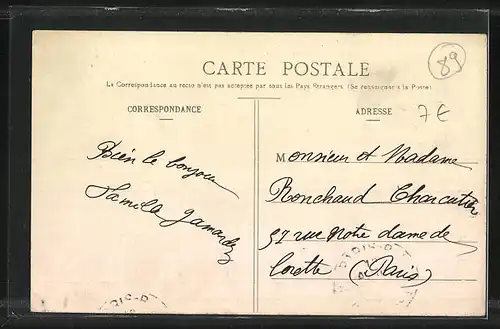 CARTE POSTALE
89
La Correspondance au recto n'est pas acceptée par tous les Pays Étrangers. (Se renseigner à la Poste)
CORRESPONDANCE
ADRESSE
7€
Bien le bonjour
famille
Monsieur et Madame
Ronchaud Charcutier
57 rue Notre dame de
lorette (Paris)
PARIS